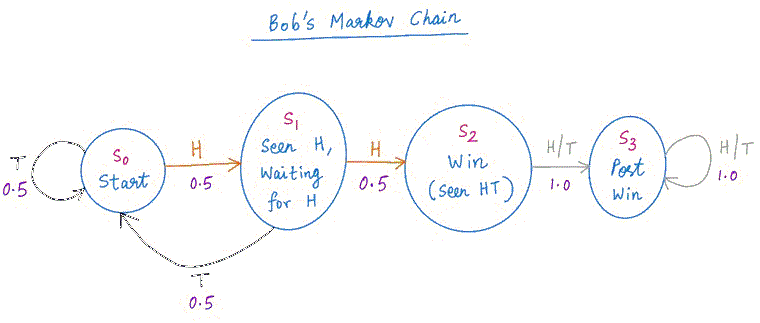 Bob's Markov Chain
T
0.5
S0
Start
H
0.5
S1
Seen H,
Waiting
for H
H
0.5
S2
Win
(Seen HT)
H/T
1.0
S3
Post
Win
H/T
1.0
T
0.5